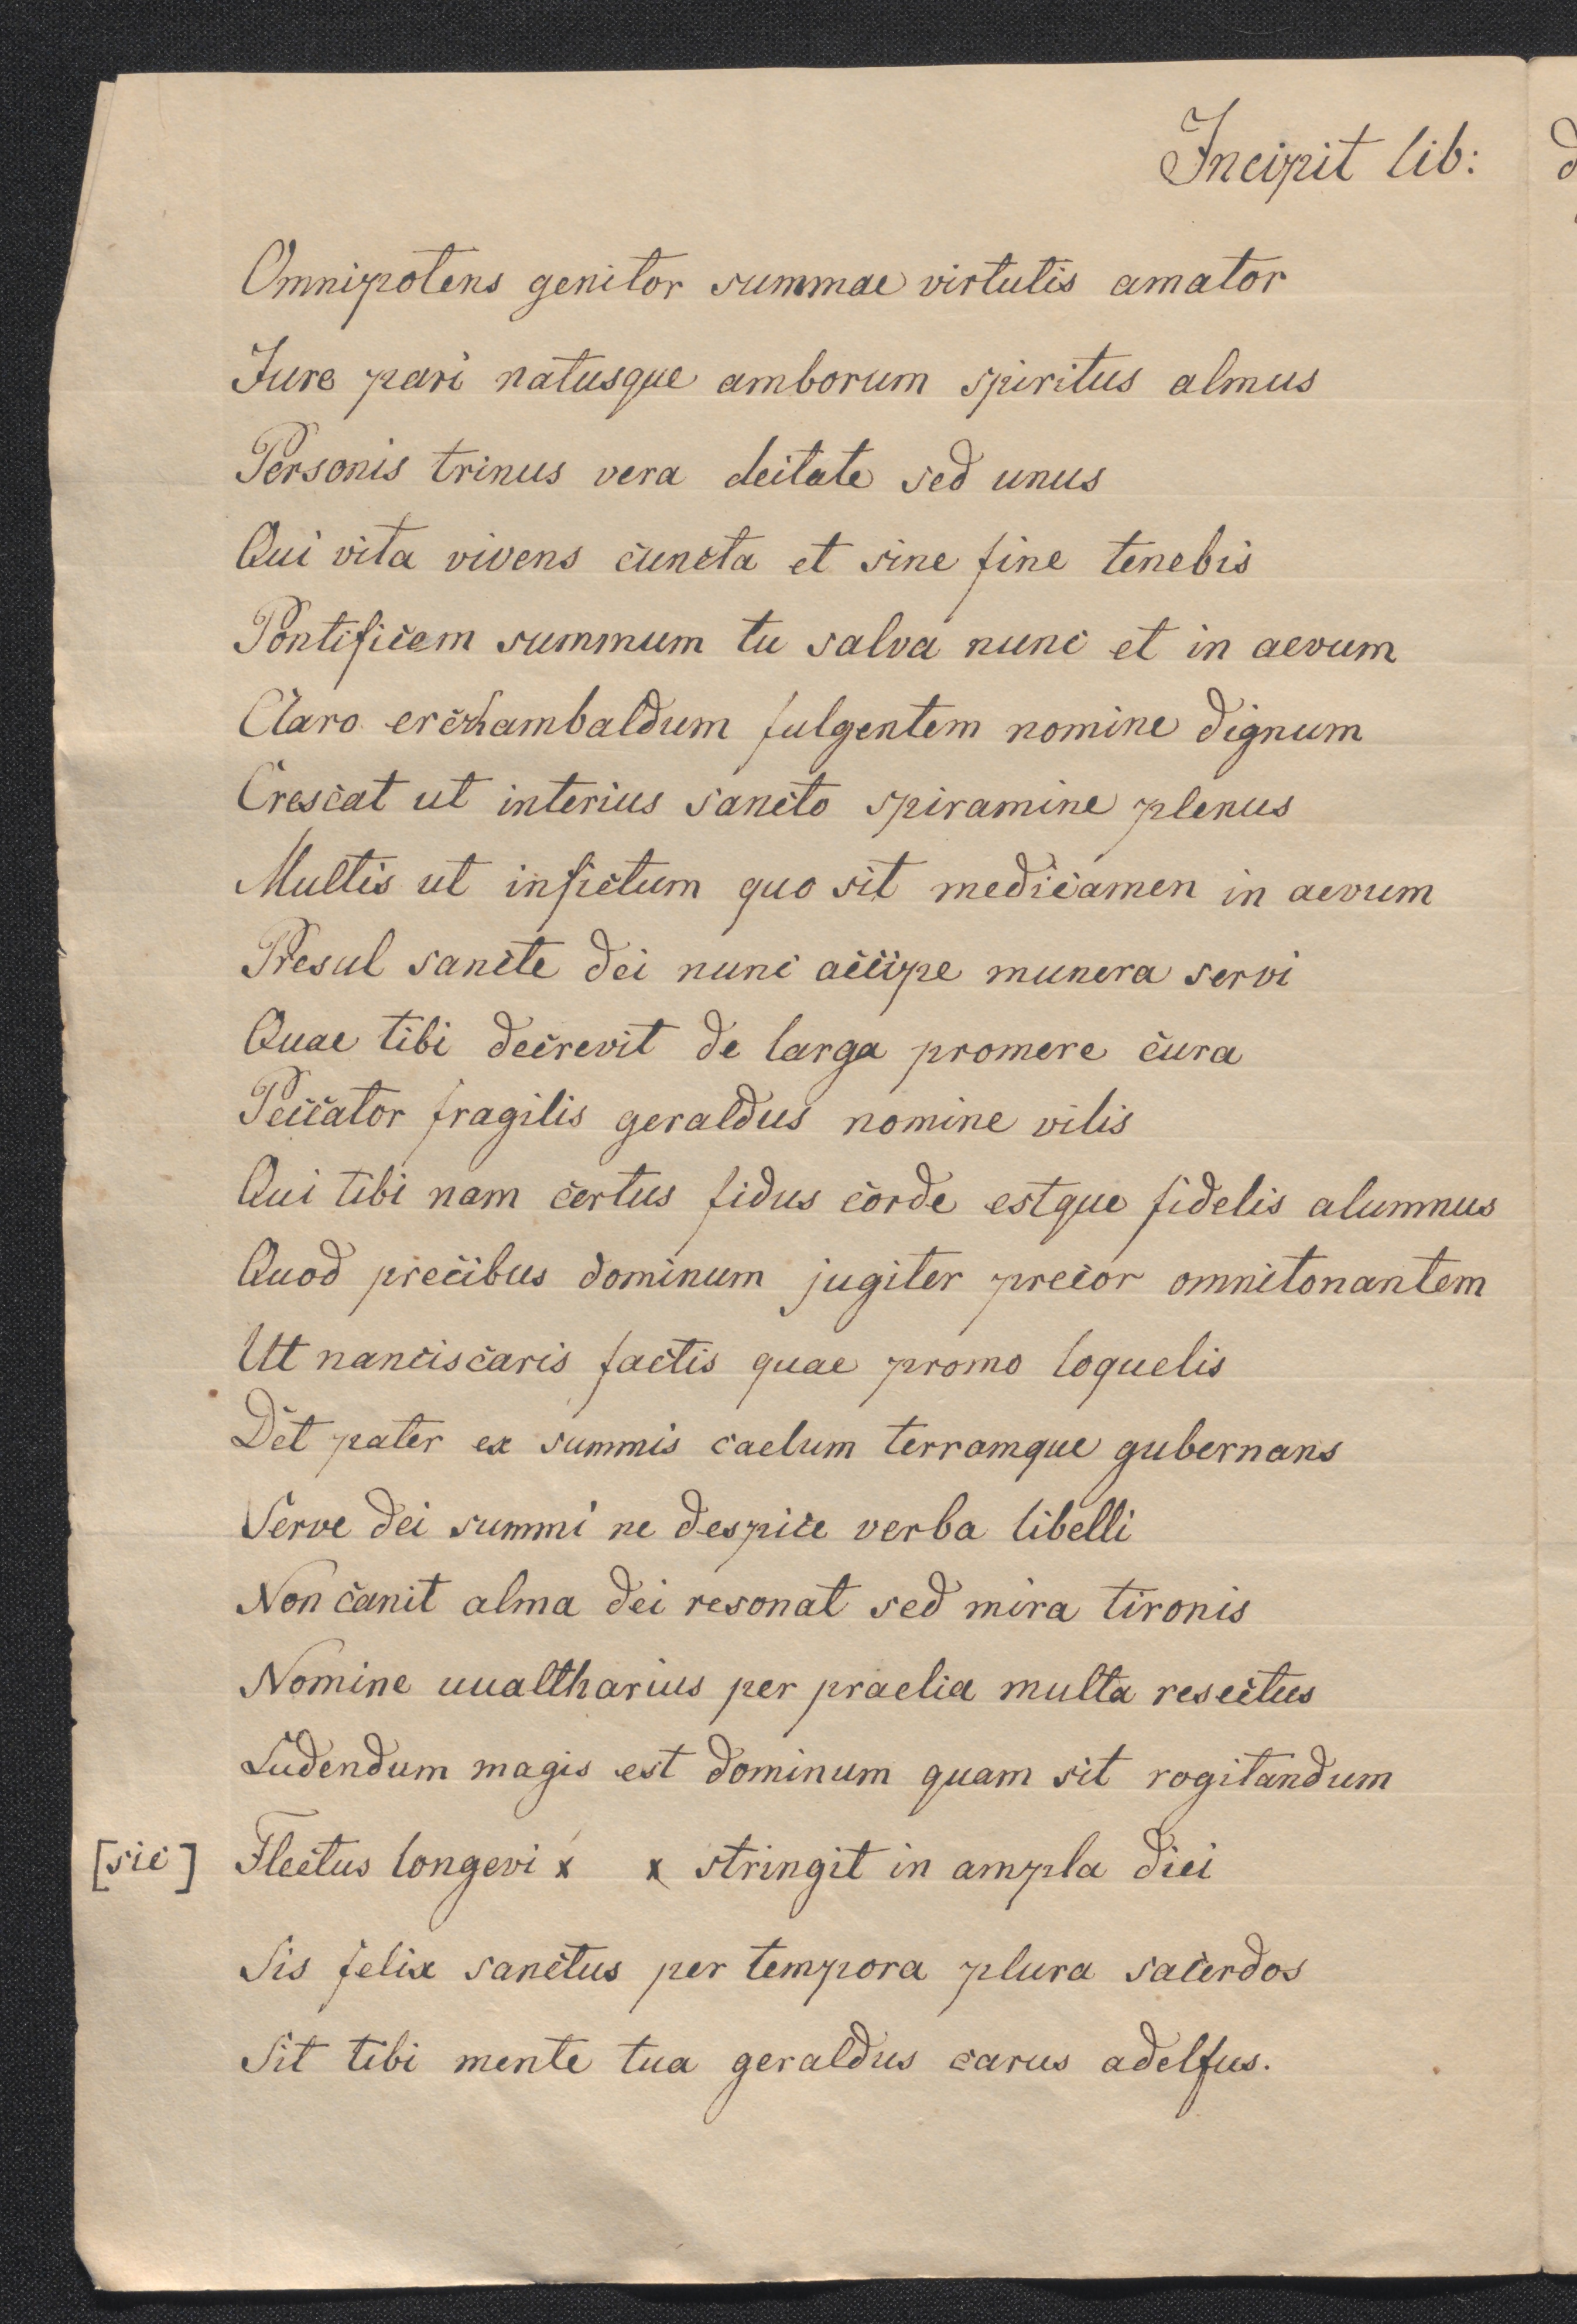 Incipit lib:
Omnipotens genitor summae virtutis amator
Jure pari natusque amborum spiritus almus
Personis trinus vera deitate sed unus
Qui vita vivens cuncta et sine fine tenebis
Pontificem summum tu salva nunc et in aevum
Claro erckambaldum fulgentem nomine dignum
Crescat ut interius sancto spiramine plenus
Multis ut infictum quo sit medicamen in aevum
Presul sancte dei nunc accipe munera servi
Quae tibi decrevit de larga promere cura
Peccator fragilis geraldus nomine vilis
Qui tibi nam certus fidus corde estque fidelis alumnus
Quod precibus dominum jugiter precor omnitonantem
Ut nanciscaris factis quae promo loquelis
Det pater ex summis caelum terramque gubernans
Serve dei summi ne despice verba libelli
Non canit alma dei resonat sed mira tironis
Nomine uualtharius per praelia multa resectus
Ludendum magis est dominum quam sit rogitandum
[sic] Flectus longevi x x stringit in ampla diei
Sis felix sanctus per tempora plura sacerdos
Sit tibi mente tua geraldus carus adelfus.